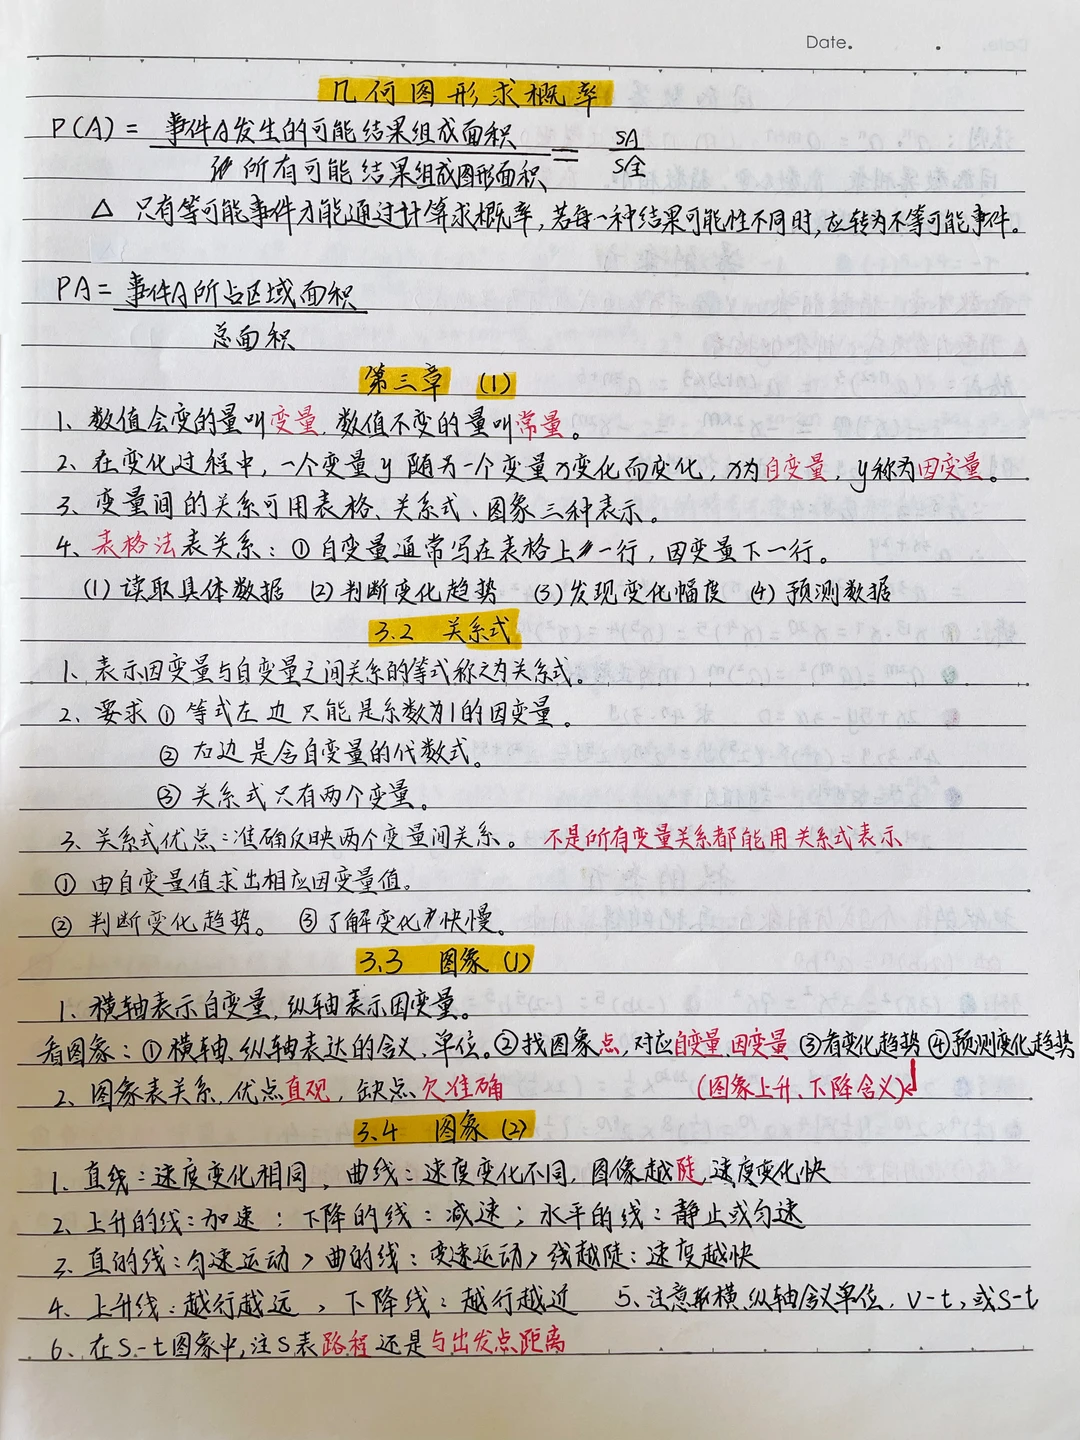 Date.
几何图形求概率
P(A) = 事件A发生的可能结果组成面积 / 所有可能结果组成图形面积 = SA / S全
△ 只有等可能事件才能通过计算求概率,若每一种结果可能性不同时,应转为不等可能事件。
PA = 事件A所占区域面积 / 总面积
第三章 (1)
1、数值会变的量叫变量,数值不变的量叫常量。
2、在变化过程中,一个变量y随另一个变量x变化而变化,x为自变量,y称为因变量。
3、变量间的关系可用表格、关系式、图象三种表示。
4、表格法表关系:①自变量通常写在表格上一行,因变量下一行。
(1)读取具体数据 (2)判断变化趋势 (3)发现变化幅度 (4)预测数据
3.2 关系式
1、表示因变量与自变量之间关系的等式称之为关系式。
2、要求 ①等式左边只能是系数为1的因变量。
②右边是含自变量的代数式。
③关系式只有两个变量。
3、关系式优点:准确反映两个变量间关系。 不是所有变量关系都能用关系式表示
①由自变量值求出相应因变量值。
②判断变化趋势。 ③了解变化快慢。
3.3 图象(1)
1、横轴表示自变量,纵轴表示因变量。
看图象:①横轴、纵轴表达的含义、单位。②找图象点,对应自变量、因变量 ③看变化趋势 ④预测变化趋势
2、图象表关系,优点直观,缺点、欠准确 (图象上升、下降含义)
3.4 图象(2)
1、直线:速度变化相同,曲线:速度变化不同,图像越陡,速度变化快
2、上升的线:加速;下降的线:减速;水平的线:静止或匀速
3、直的线:匀速运动>曲的线:变速运动>线越陡:速度越快
4、上升线:越行越远,下降线:越行越近 5、注意横、纵轴含义单位,v-t,或s-t
6、在S-t图象中,注S表路程还是与出发点距离